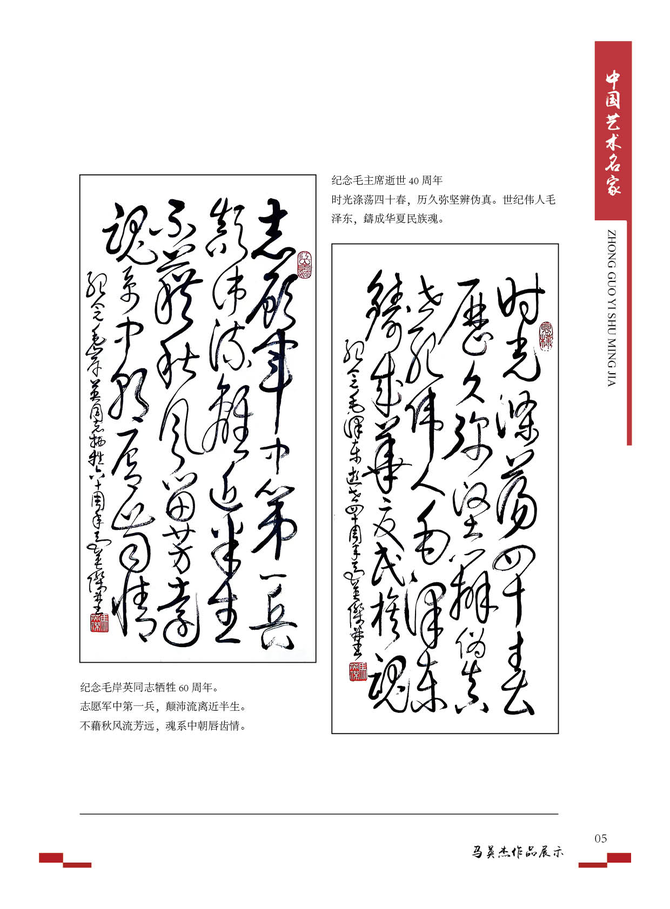 中国艺术名家
ZHONG GUO YI SHU MING JIA
纪念毛主席逝世 40 周年
时光涤荡四十春，历久弥坚辨伪真。世纪伟人毛
泽东，鑄成华夏民族魂。
时光涤荡四十春
歷久弥坚辨偽真
世纪伟人毛泽东
鑄成華夏民族魂
纪念毛泽东逝世四十周年马英傑书
志愿军中第一兵
颠沛流離近半生
不藉秋风留芳远
魂系中朝唇齿情
纪念毛岸英同志牺牲六十周年马英傑书
纪念毛岸英同志牺牲 60 周年。
志愿军中第一兵，颠沛流离近半生。
不藉秋风流芳远，魂系中朝唇齿情。
马英杰作品展示
05